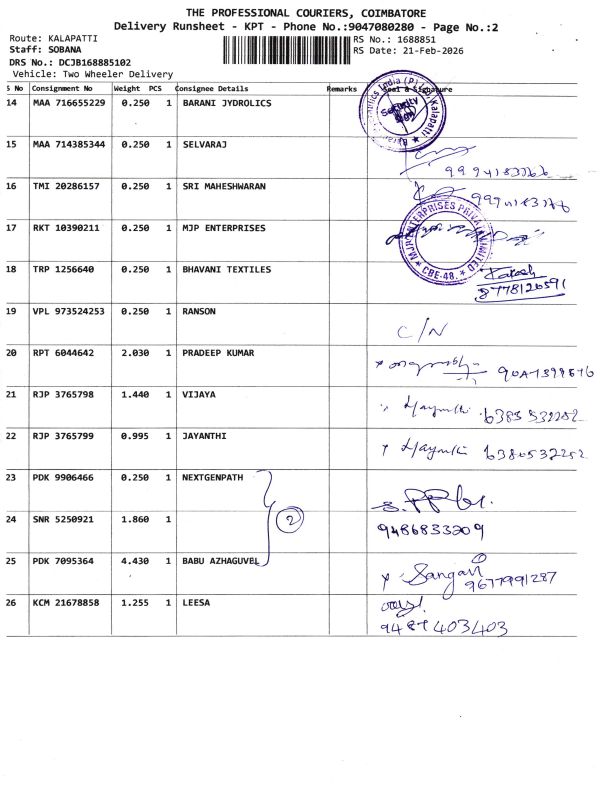 THE PROFESSIONAL COURIERS, COIMBATORE
Delivery Runsheet - KPT - Phone No.:9047080280 - Page No.:2
Route: KALAPATTI
RS No.: 1688851
Staff: SOBANA
RS Date: 21-Feb-2026
DRS No.: DCJB168885102
Vehicle: Two Wheeler Delivery
S No Consignment No Weight PCS Consignee Details Remarks Seal & Signature
14 MAA 716655229 0.250 1 BARANI JYDROLICS
Security
15 MAA 714385344 0.250 1 SELVARAJ
16 TMI 20286157 0.250 1 SRI MAHESHWARAN
17 RKT 10390211 0.250 1 MJP ENTERPRISES
ENTERPRISES PRIVATE LIMITED
* CBE-48. *
18 TRP 1256640 0.250 1 BHAVANI TEXTILES
8778126591
19 VPL 973524253 0.250 1 RANSON
C/N
20 RPT 6044642 2.030 1 PRADEEP KUMAR
21 RJP 3765798 1.440 1 VIJAYA
22 RJP 3765799 0.995 1 JAYANTHI
6380532252
23 PDK 9906466 0.250 1 NEXTGENPATH
24 SNR 5250921 1.860 1
2
9486833209
25 PDK 7095364 4.430 1 BABU AZHAGUVEL
Sangavi
9677991287
26 KCM 21678858 1.255 1 LEESA
9487403403